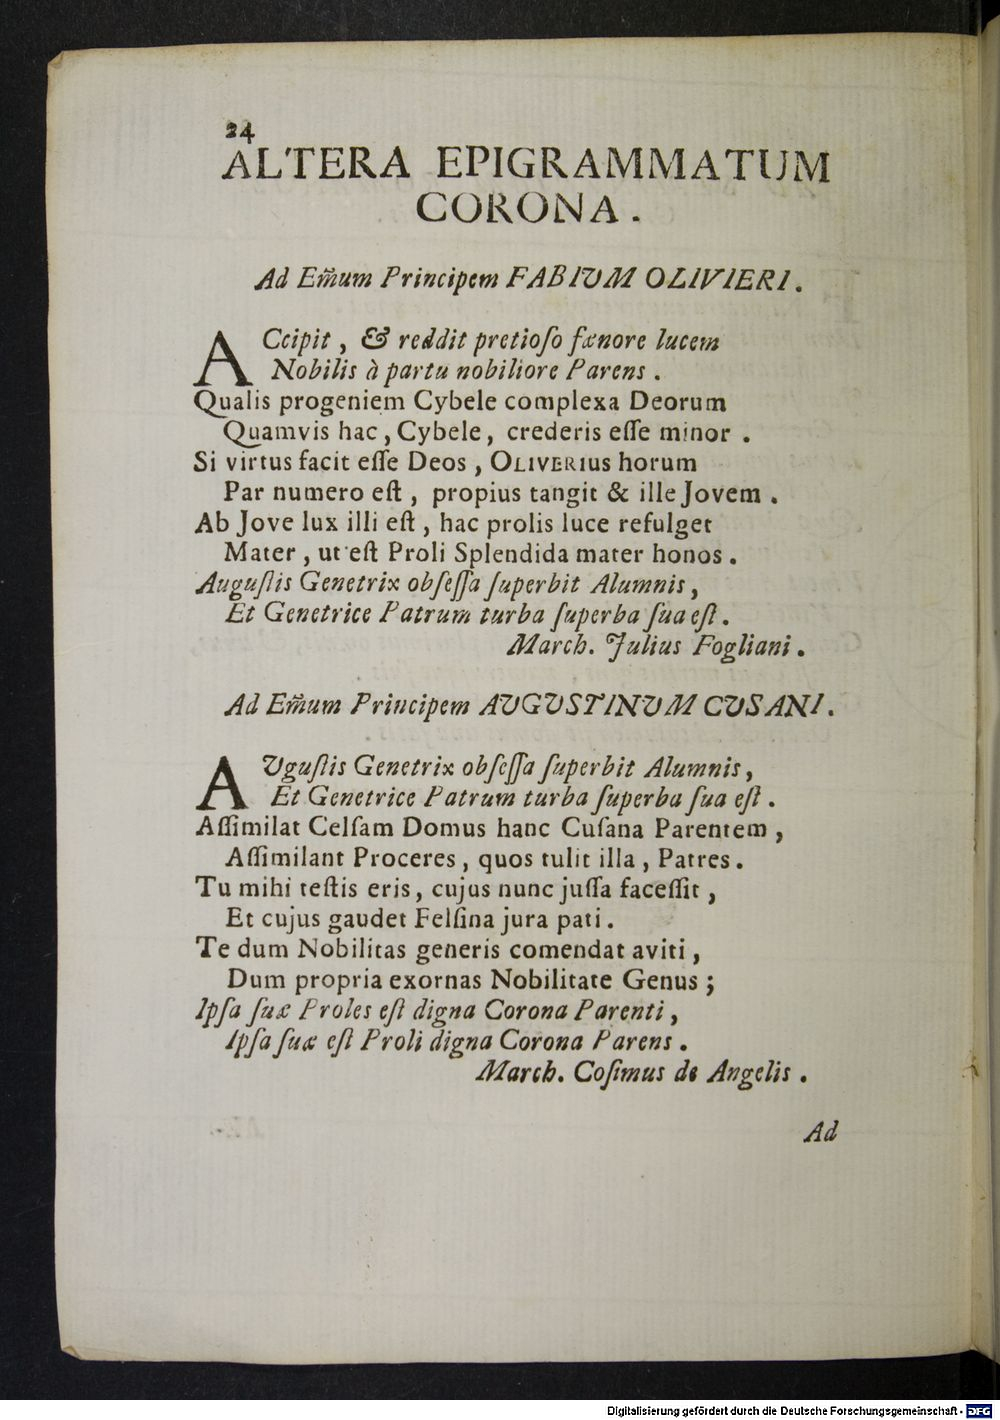 24
ALTERA EPIGRAMMATUM
CORONA.
Ad Em̃um Principem FABIVM OLIVIERI.
ACcipit, & reddit pretioſo fænore lucem
Nobilis à partu nobiliore Parens.
Qualis progeniem Cybele complexa Deorum
Quamvis hac, Cybele, crederis eſſe minor.
Si virtus facit eſſe Deos, OLIVERIus horum
Par numero eſt, propius tangit & ille Jovem.
Ab Jove lux illi eſt, hac prolis luce refulget
Mater, ut eſt Proli Splendida mater honos.
Auguſtis Genetrix obſeſſa ſuperbit Alumnis,
Et Genetrice Patrum turba ſuperba ſua eſt.
March. Julius Fogliani.
Ad Em̃um Principem AVGVSTINVM CVSANI.
AVguſtis Genetrix obſeſſa ſuperbit Alumnis,
Et Genetrice Patrum turba ſuperba ſua eſt.
Aſſimilat Celſam Domus hanc Cuſana Parentem,
Aſſimilant Proceres, quos tulit illa, Patres.
Tu mihi teſtis eris, cujus nunc juſſa faceſſit,
Et cujus gaudet Felſina jura pati.
Te dum Nobilitas generis comendat aviti,
Dum propria exornas Nobilitate Genus;
Ipſa ſuæ Proles eſt digna Corona Parenti,
Ipſa ſuæ eſt Proli digna Corona Parens.
March. Coſimus de Angelis.
Ad
Digitalisierung gefördert durch die Deutsche Forschungsgemeinschaft - DFG